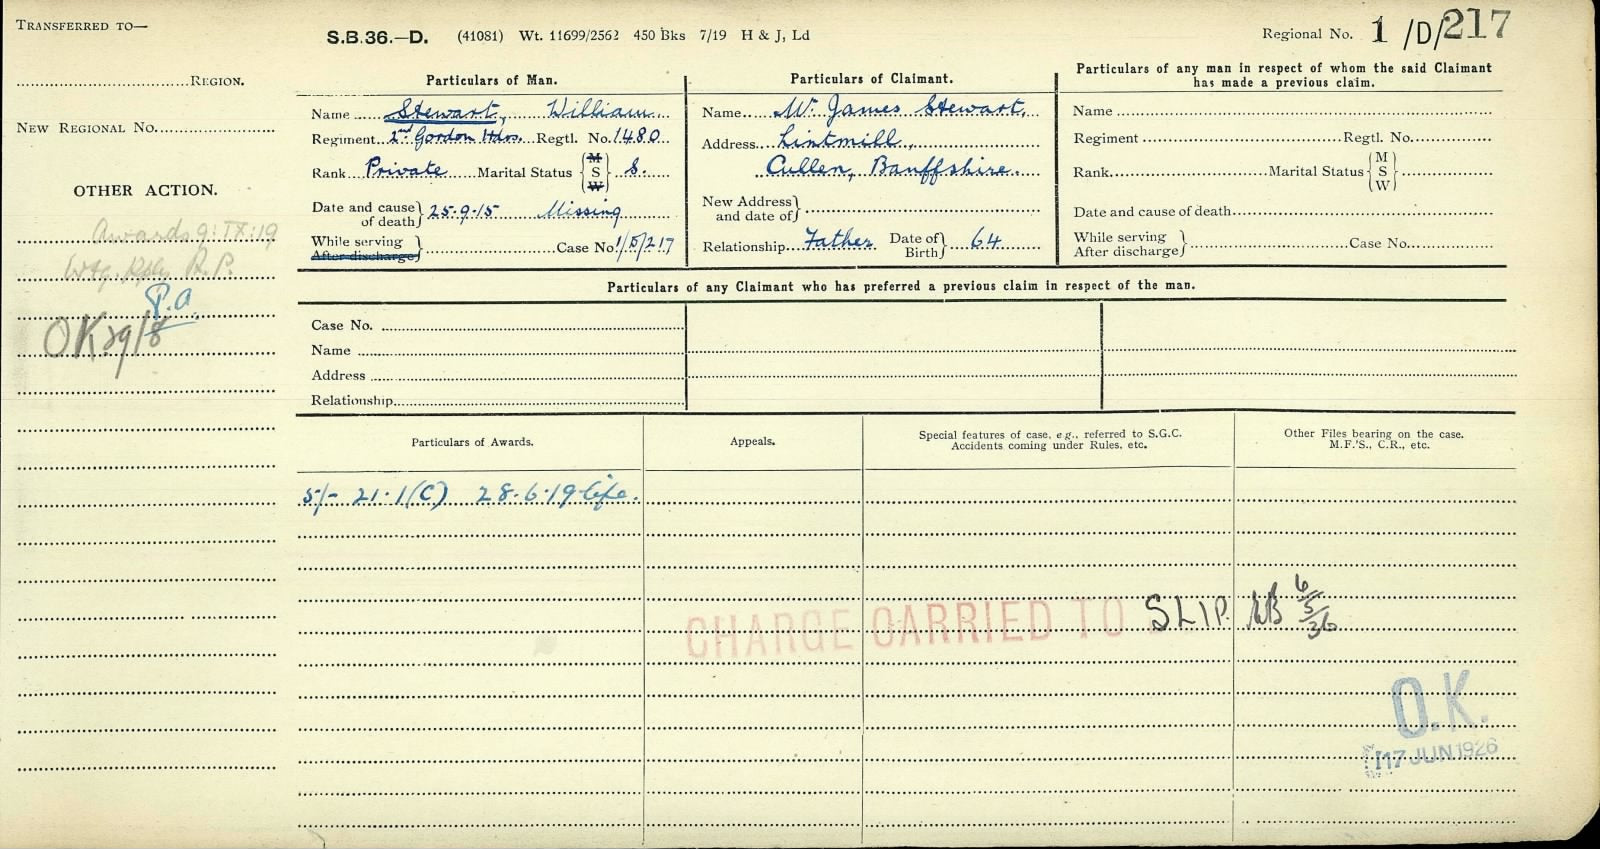 TRANSFERRED TO—
S.B.36.—D. (41081) Wt. 11699/2562 450 Bks 7/19 H & J, Ld
Regional No. 1 /D/217
REGION.
NEW REGIONAL NO.
OTHER ACTION.
Awards 9:IX:19
R.P.
P.a.
OK 29/8
Particulars of Man.
Name Stewart, William
Regiment 2nd Gordon Hdrs. Regtl. No. 1480
Rank Private Marital Status {M S W} S.
Date and cause of death} 25.9.15 Missing
While serving
After discharge} Case No 1/D/217
Particulars of Claimant.
Name Mr. James Stewart,
Address Lintmill,
Cullen, Banffshire.
New Address
and date of}
Relationship Father Date of Birth} 64
Particulars of any man in respect of whom the said Claimant
has made a previous claim.
Name
Regiment Regtl. No.
Rank Marital Status {M S W}
Date and cause of death
While serving
After discharge} Case No
Particulars of any Claimant who has preferred a previous claim in respect of the man.
Case No.
Name
Address
Relationship
Particulars of Awards.
Appeals.
Special features of case, e.g., referred to S.G.C.
Accidents coming under Rules, etc.
Other Files bearing on the case.
M.F.'S., C.R., etc.
5/- 21.1(C) 28.6.19 life.
CHARGE CARRIED TO SLIP. 6/5/36
O.K.
17 JUN 1926